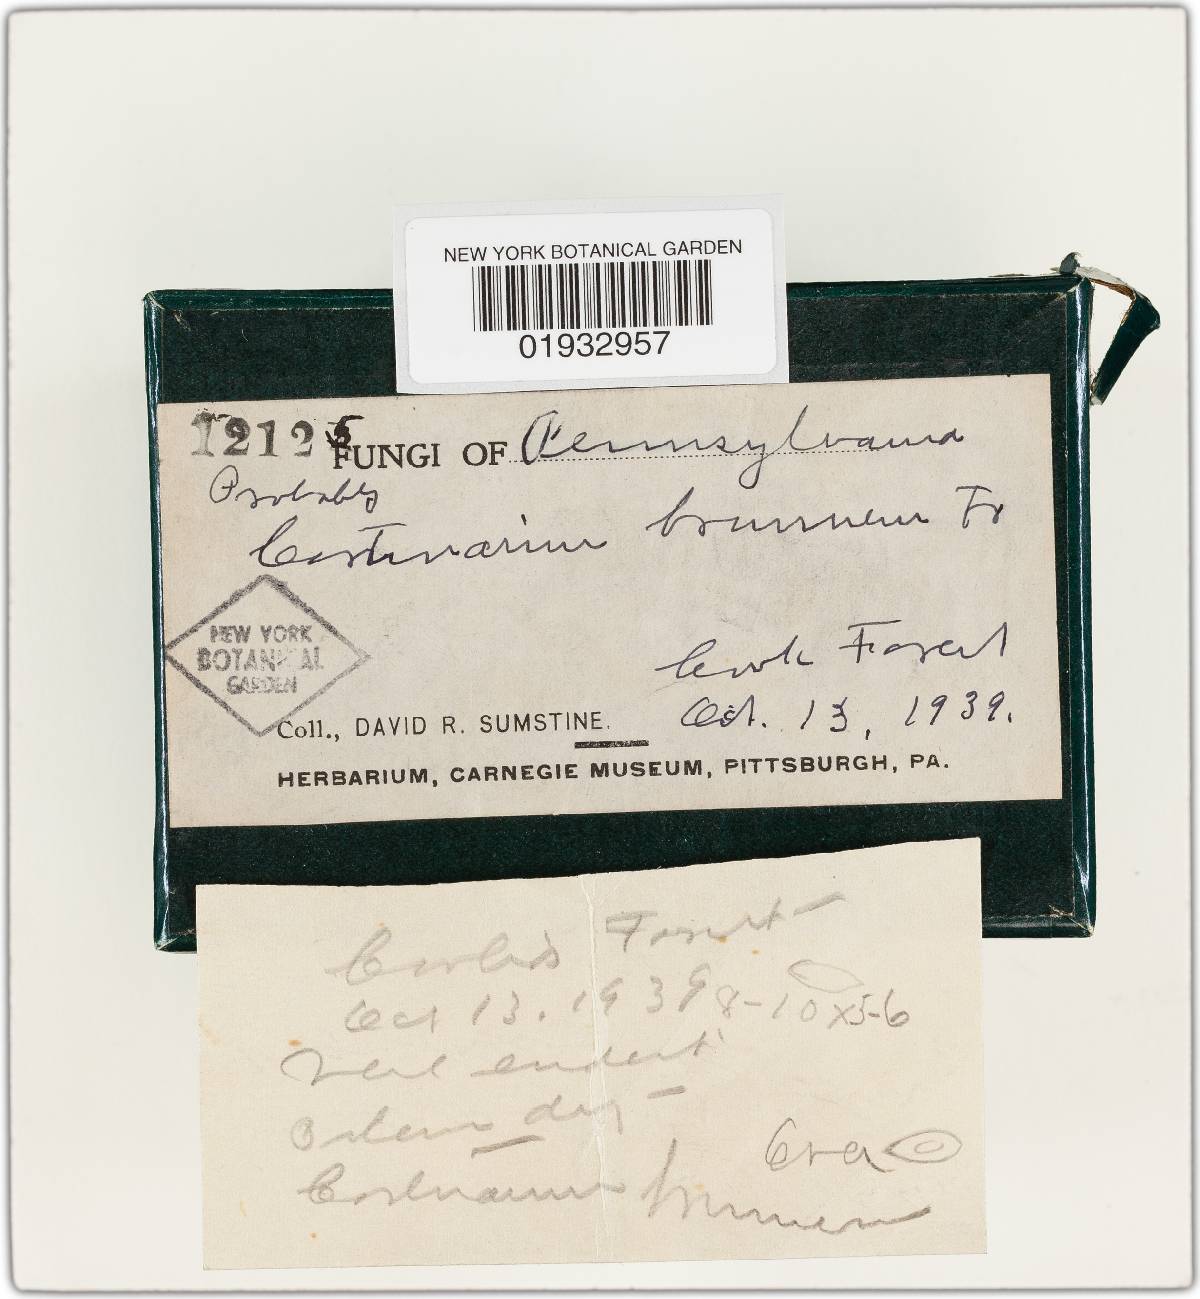 NEW YORK BOTANICAL GARDEN
01932957
12125
FUNGI OF Pennsylvania
Probably
Cortinarius brunneus Fr
NEW YORK
BOTANICAL
GARDEN
Cook Forest
Oct. 13, 1939.
Coll., DAVID R. SUMSTINE.
HERBARIUM, CARNEGIE MUSEUM, PITTSBURGH, PA.
Forest
Oct 13. 1939 8-10 x 5-6
Veil evident
Cortinarius brunneus